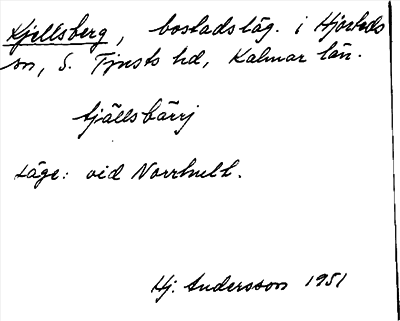 Kjellsberg, bostadsläg. i Hjorteds
sn, S. Tjusts hd, Kalmar län.
tjällsbärj
Läge: vid Norrhult.
Hj. Andersson 1951